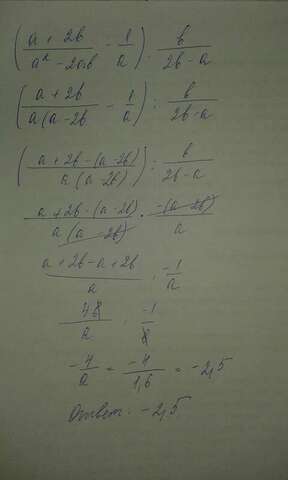 ((a + 2b)/(a² - 2ab) - 1/a) : b/(2b - a)
((a + 2b)/(a(a - 2b) - 1/a) : b/(2b - a)
((a + 2b - (a - 2b))/(a(a - 2b))) : b/(2b - a)
(a + 2b - (a - 2b))/(a(a - 2b)) · (-(a - 2b))/a
(a + 2b - a + 2b)/a · -1/a
4b/a · -1/b
-4/a = -4/1,6 = -2,5
Ответ: -2,5